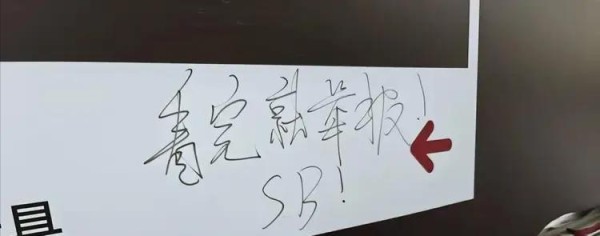 看完就举报!
SB!
具